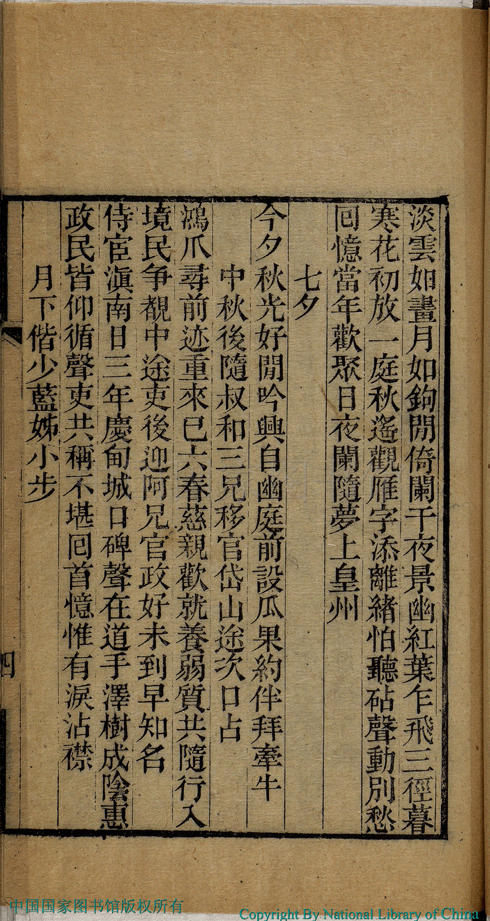 淡雲如畫月如鉤閒倚闌干夜景幽紅葉乍飛三徑暮
寒花初放一庭秋遙觀雁字添離緒怕聽砧聲動別愁
囘憶當年歡聚日夜闌隨夢上皇州
七夕
今夕秋光好閒吟興自幽庭前設瓜果約伴拜牽牛
中秋後隨叔和三兄移官岱山途次口占
鴻爪尋前迹重來已六春慈親歡就養弱質共隨行入
境民争覩中途吏後迎阿兄官政好未到早知名
侍宦滇南日三年慶甸城口碑聲在道手澤樹成陰惠
政民皆仰循聲吏共稱不堪囘首憶惟有淚沾襟
月下偕少藍姊小步
四
中国国家图书馆版权所有
Copyright By National Library of China